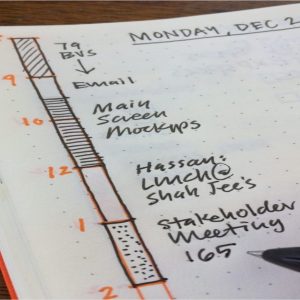 MONDAY, DEC 2
BVS
9
Email
Main
10
Screen
Mockups
12
Hassan:
Lunch@
Shah Jee's
1
Stakeholder
Meeting
165
2